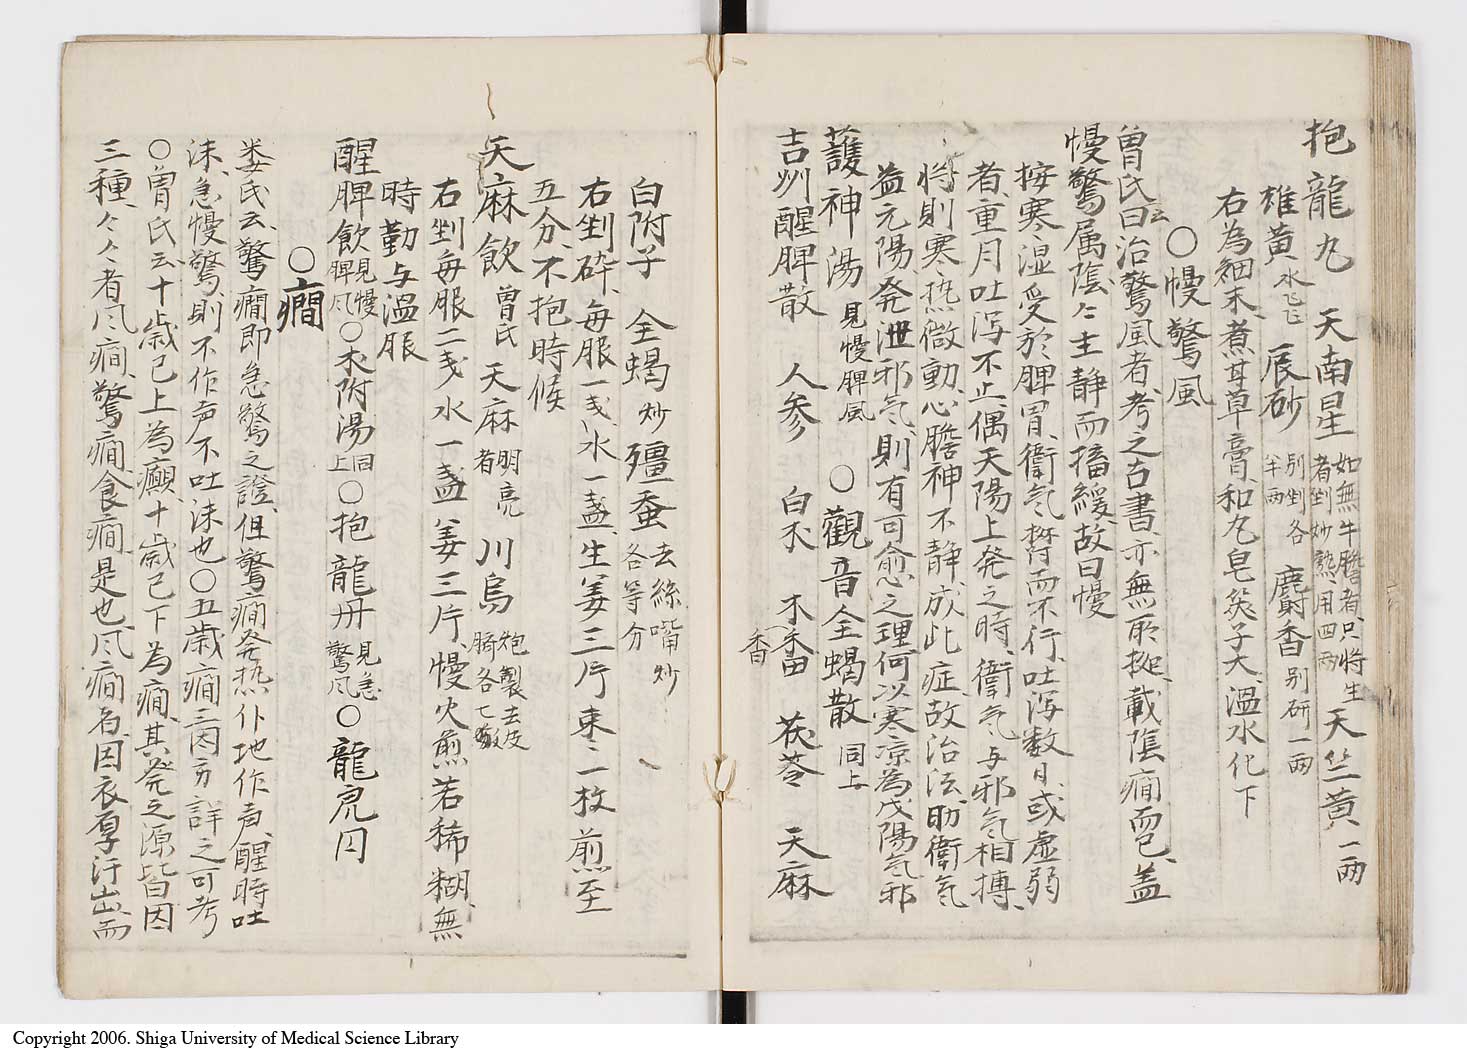 抱龍丸　天南星 如無牛膽者只將生者剉炒熟用四両 天竺黄 一両
雄黄 水飞 辰砂 別剉各半両 麝香 別研一両
右為細末煮甘草膏和丸皂莢子大温水化下
○慢驚風
曽氏曰云治驚風者考之古書亦無所拠載陰癎而已盖
慢驚属陰々主静而搐緩故曰慢
按寒湿受於脾胃衛気欝而不行吐瀉数日或虚弱
者重月吐瀉不止偶天陽上発之時衛気与邪気相搏
将則寒热微動心膽神不静成此症故治法助衛気
益元陽発泄邪気則有可愈之理何以寒凉為伐陽気邪
護神湯 見慢脾風 ○觀音全蝎散 同上
吉州醒脾散　人参　白朮　木香　茯苓　天麻
香
白附子　全蝎 炒 殭蚕 去絲嘴炒各等分
右剉碎毎服一戔水一盞生姜三片束〻一枚煎至
五分不抱時候
天麻飲 曽氏 天麻 明亮者 川烏 炮製去皮臍各七
右剉毎服二戔水一盞姜三片慢火煎若稀糊無
時勤与温服
醒脾飲 見慢脾风 ○朮附湯 同上 ○抱龍丹 見急驚风 ○龍虎円
○癎
娄氏云驚癎即急驚之證但驚癎発热仆地作声醒時吐
沫急慢驚則不作声不吐沫也○五歳癎三因方詳之可考
○曽氏云十歳已上為癲十歳已下為癎其発之源皆因
三種々々者风癎驚癎食癎是也风癎者因衣厚汗出而